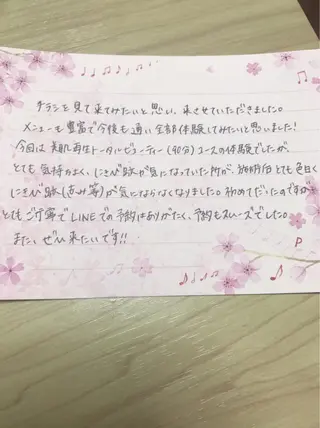 チラシを見て来てみたいと思い、来させていただきました。
メニューも豊富で今後も通い全部体験してみたいと思いました!
今回は美肌再生トータルビューティー(90分)コースの体験でしたが
とても気持ちよく、にきび跡が気になっていた所が、施術後とても色白く
にきび跡(赤み等)が気にならなくなりました。初めてだったのですが
とてもご丁寧でLINEでの予約はありがたく、予約もスムーズでした。
また、ぜひ来たいです!!
P